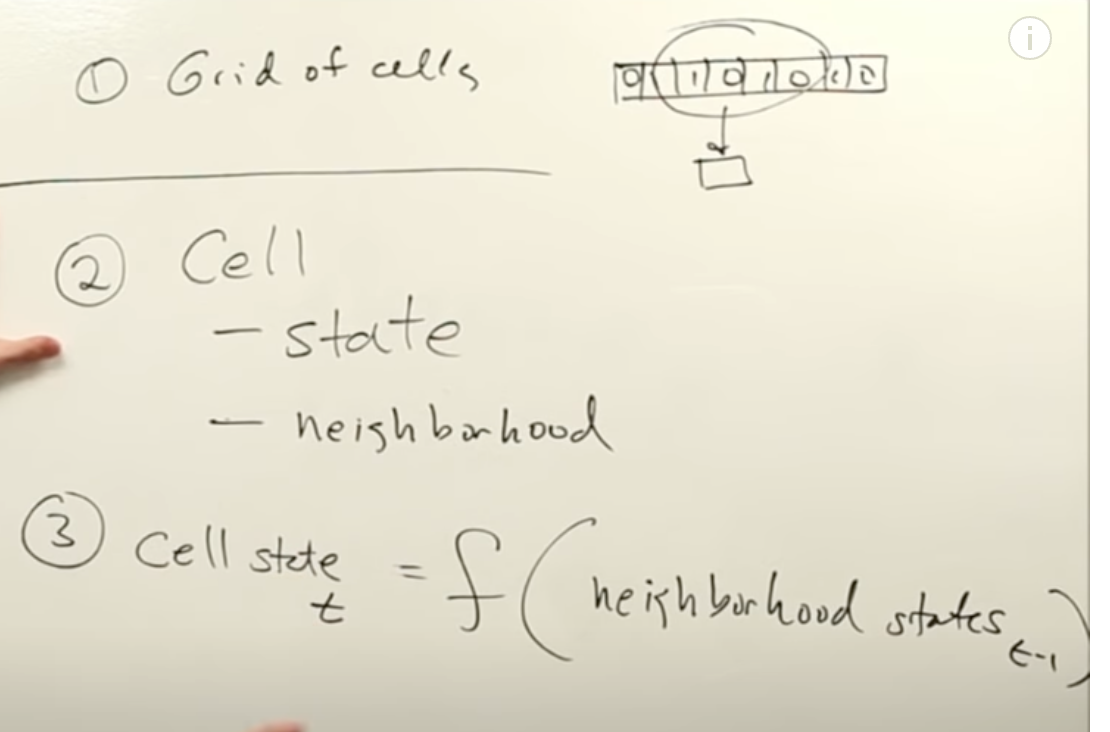 ① Grid of cells
② Cell
- state
- neighborhood
③ Cell state t = f ( neighborhood states t-1 )